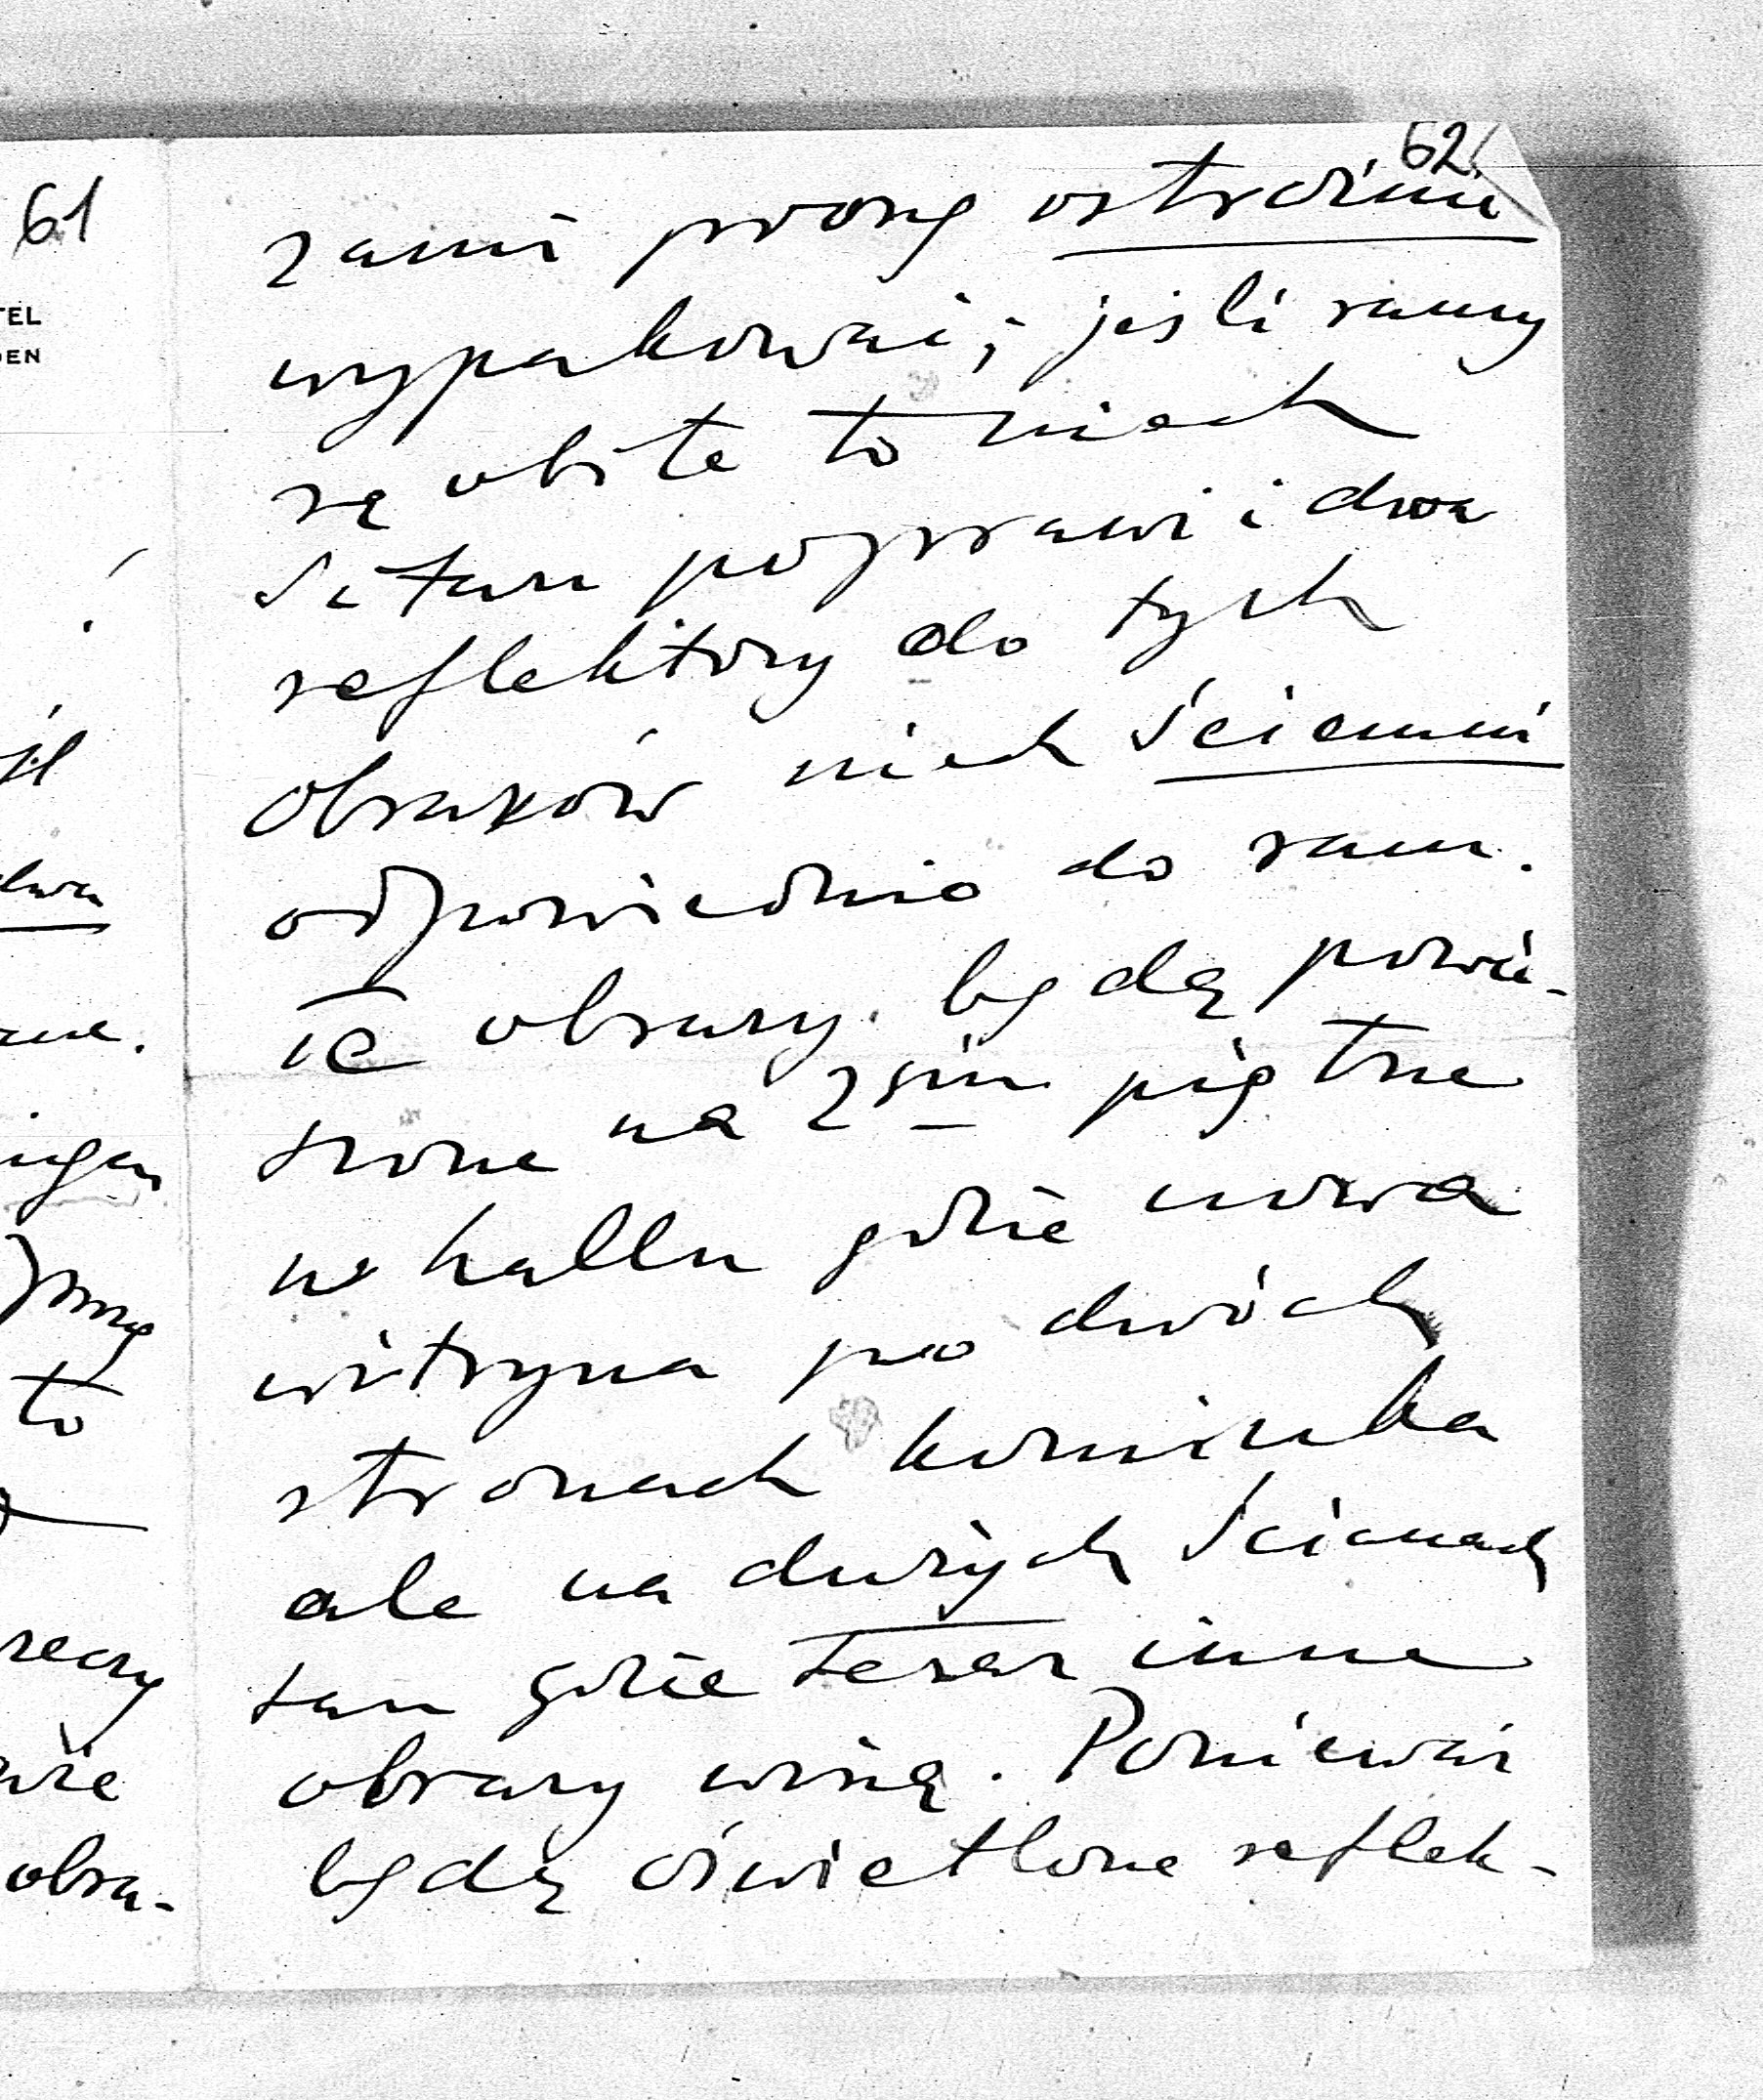 61
TEL
DEN
dwa
to
reczy
obra-
62
zami proszę ostrożnie
wypakować; jeśli ramy
są obite to niech
Sztun poprawi i dwa
reflektory do tych
obrazów niech ściemni
odpowiednio do ram.
Te obrazy będą powie-
szone na 2gim piętrze
w hallu gdzie nowa
witryna po dwóch
stronach kominka
ale na dużych ścianach
tam gdzie teraz inne
obrazy wiszą. Ponieważ
będą oświetlone reflek-